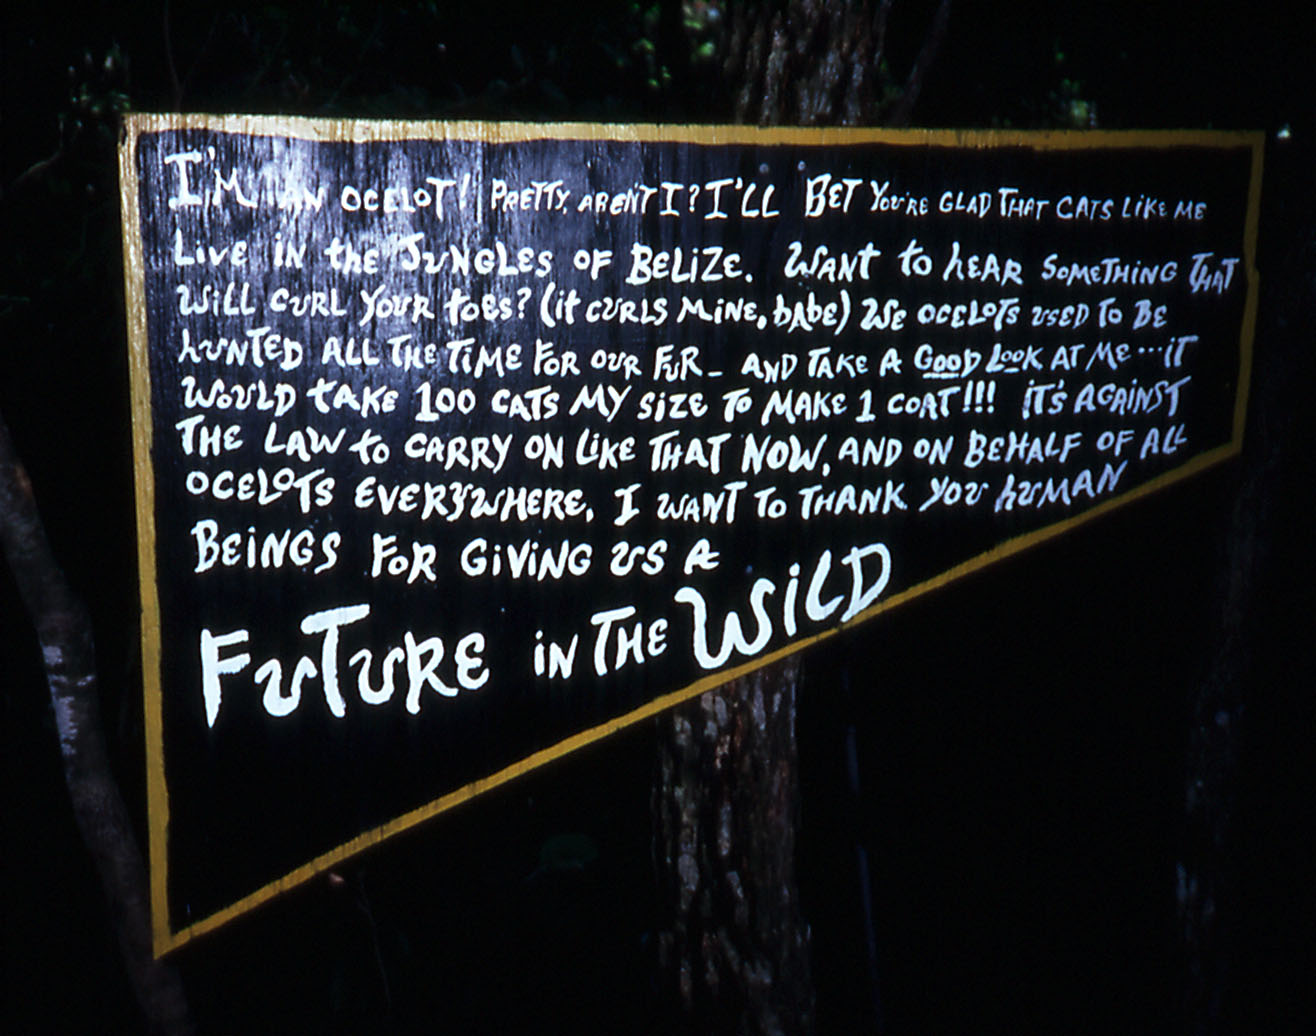 I'M AN OCELOT! PRETTY, AREN'T I? I'LL BET YOU'RE GLAD THAT CATS LIKE ME
LIVE IN the JUNGLES OF BELIZE. WANT to hEAR SOMETHING THAT
WILL CURL YOUR toes? (it CURLS MINE, bAbe) WE OCELOTS USED TO BE
hUNTED ALL THE TIME FOR OUR FUR - AND TAKE A GOOD LOOK AT ME...IT
WOULD tAKE 100 CATS MY SIZE TO MAKE 1 COAT!!! IT'S AGAINST
THE LAW to CARRY ON LIKE THAT NOW, AND ON BEHALF OF ALL
OCELOTS EVERYWHERE, I WANT TO THANK YOU hUMAN
BEINGS FOR GIVING US A
FUTURE IN THE WILD